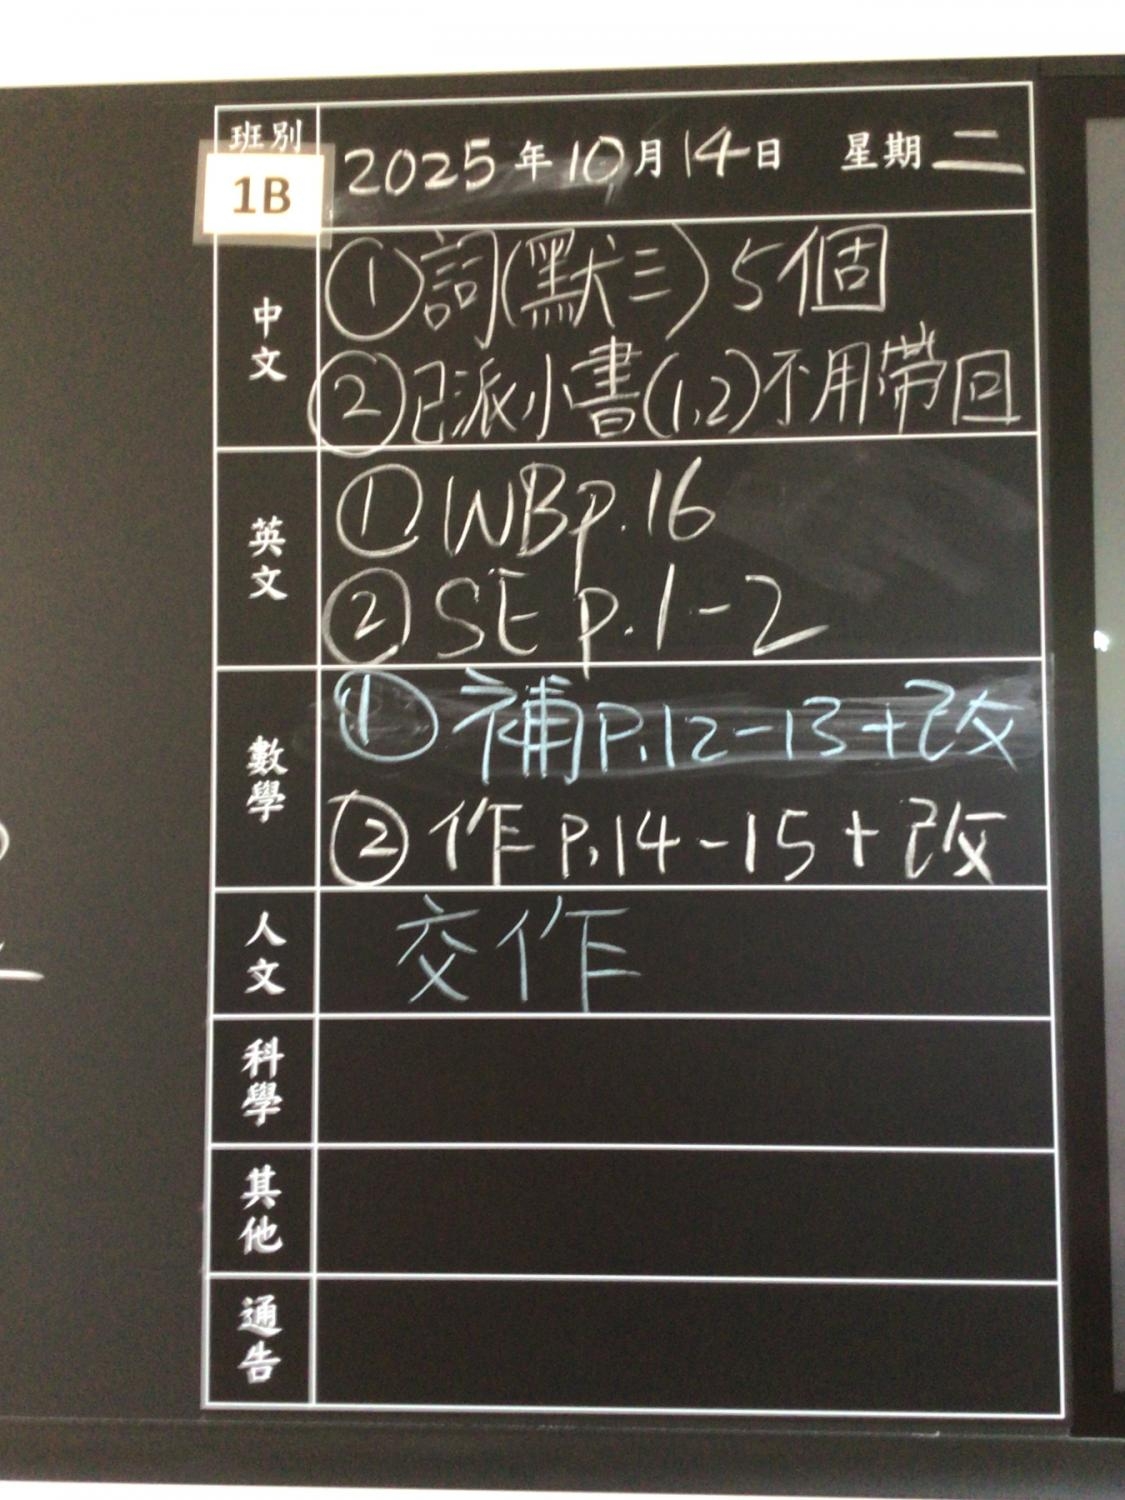 班別
1B
2025年10月14日 星期二
中文
①詞(默三)5個
②已派小書(1,2)不用帶回
英文
①WB p.16
②SE p.1-2
數學
①補P.12-13+改
②作P.14-15+改
人文
交作
科學
其他
通告